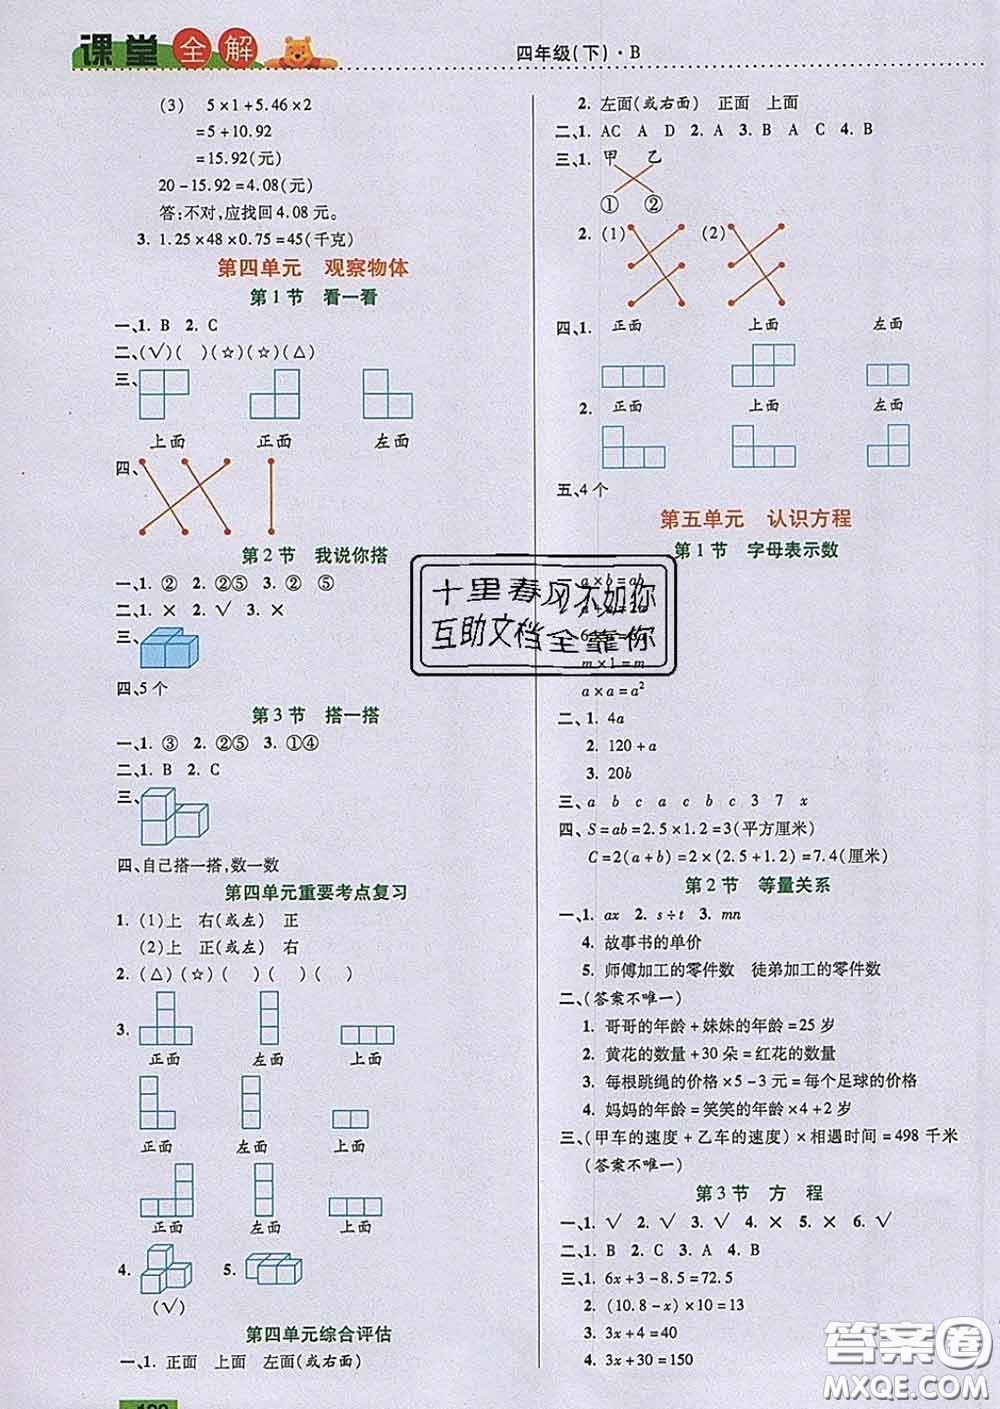 课堂全解
四年级(下)·B
(3) 5×1+5.46×2
=5+10.92
=15.92(元)
20-15.92=4.08(元)
答:不对,应找回4.08元。
3. 1.25×48×0.75=45(千克)
第四单元 观察物体
第1节 看一看
一、1. B 2. C
二、(√)( )(☆)(☆)(△)
三、
上面 正面 左面
四、
第2节 我说你搭
一、1. ② 2. ②⑤ 3. ② ⑤
二、1. × 2. √ 3. ×
三、
四、5个
第3节 搭一搭
一、1. ③ 2. ②⑤ 3. ①④
二、1. B 2. C
三、
四、自己搭一搭,数一数
第四单元重要考点复习
1. (1)上 右(或左) 正
(2)上 正(或左) 右
2. (△)(☆)( )( )( )
3.
正面 左面 上面
正面 左面 上面
正面 左面 上面
4. 5.
(√)
第四单元综合评估
一、1. 正面 上面 左面(或右面)
2. 左面(或右面) 正面 上面
二、1. AC A D 2. A 3. B A C 4. B
三、1. 甲 乙
① ②
2. (1) (2)
四、1. 正面 上面 左面
2. 正面 上面 左面
五、4个
第五单元 认识方程
第1节 字母表示数
a×b=ab
m×1=m
a×a=a²
二、1. 4a
2. 120+a
3. 20b
三、a b c a c b c 3 7 x
四、S=ab=2.5×1.2=3(平方厘米)
C=2(a+b)=2×(2.5+1.2)=7.4(厘米)
第2节 等量关系
一、1. ax 2. s÷t 3. mn
4. 故事书的单价
5. 师傅加工的零件数 徒弟加工的零件数
二、(答案不唯一)
1. 哥哥的年龄+妹妹的年龄=25岁
2. 黄花的数量+30朵=红花的数量
3. 每根跳绳的价格×5-3元=每个足球的价格
4. 妈妈的年龄=笑笑的年龄×4+2岁
三、(甲车的速度+乙车的速度)×相遇时间=498千米
(答案不唯一)
第3节 方程
一、1. √ 2. √ 3. √ 4. × 5. × 6. √
二、1. B 2. C 3. A 4. B
三、1. 6x+3-8.5=72.5
2. (10.8-x)×10=13
3. 3x+6=54
4. 3x+30=150
十里春风不如你
互助文档全靠你
答案圈
MXQE.COM